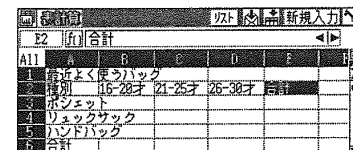 表計算 リスト 新規入力
E2 f() 合計
All A B C D E F
1 最近よく使うバッグ
2 種別 16-20才 21-25才 26-30才 合計
3 ポシェット
4 リュックサック
5 ハンドバッグ
6 合計